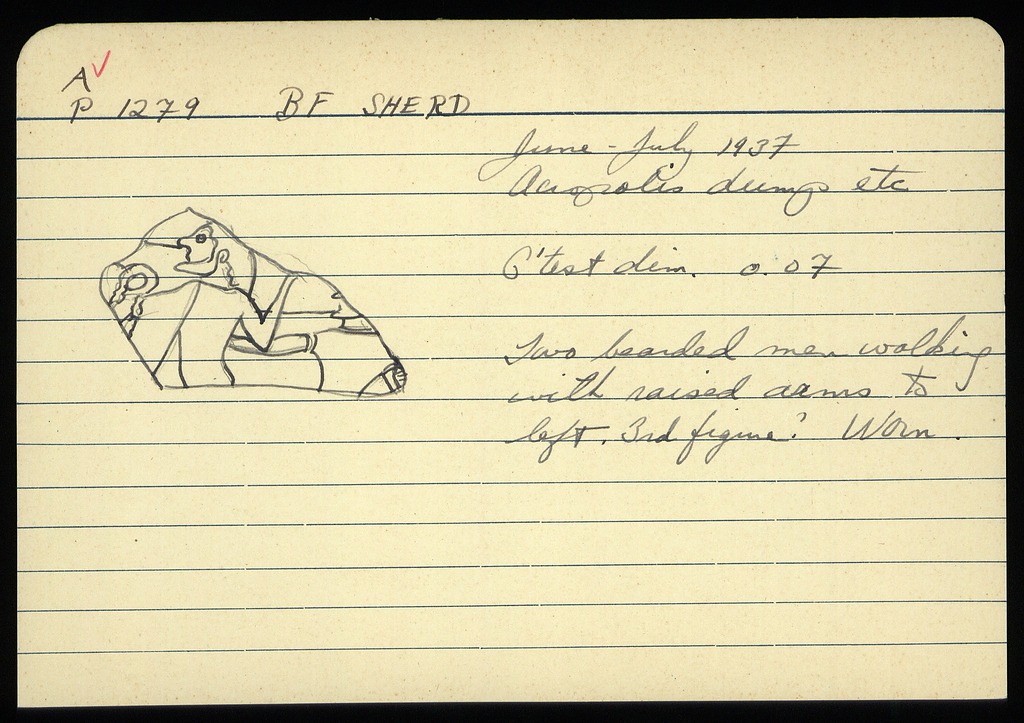 A
P 1279 BF SHERD
June - July 1937
Acropolis dump etc
G'test dim. 0.07
Two bearded men walking
with raised arms to
left. 3rd figure? Worn.